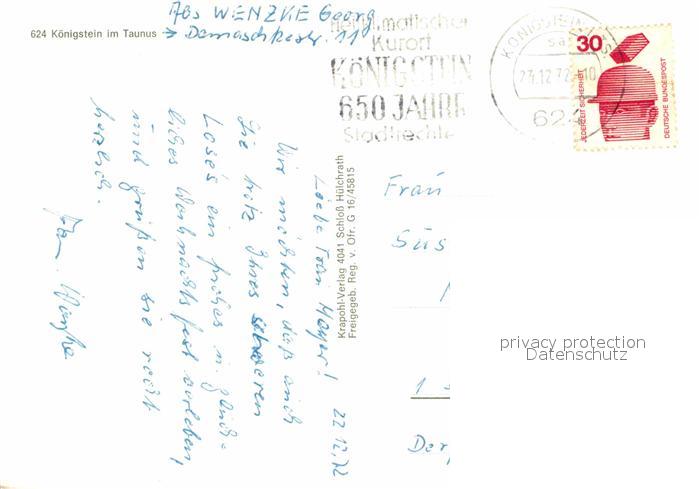 Abs WENZKE Georg
624 Königstein im Taunus → Damaschkestr. 11
Heilklimatischer
Kurort
KÖNIGSTEIN
650 JAHRE
Stadtrechte
KÖNIGSTEIN
24.12.72
624
30
JEDERZEIT SICHERHEIT
DEUTSCHE BUNDESPOST
Krapohl-Verlag 4041 Schloß Hülchrath
Freigegeb. Reg. v. Ofr. G 16/45815
22.12.72
Liebe Frau Mayer!
Wir möchten, daß auch
Sie trotz Ihres schweren
Loses ein frohes u. glück-
liches Weihnachtsfest verleben,
und grüßen sie recht
herzlich.
Fam. Wenzke
Frau
Süs
1
Der
privacy protection
Datenschutz